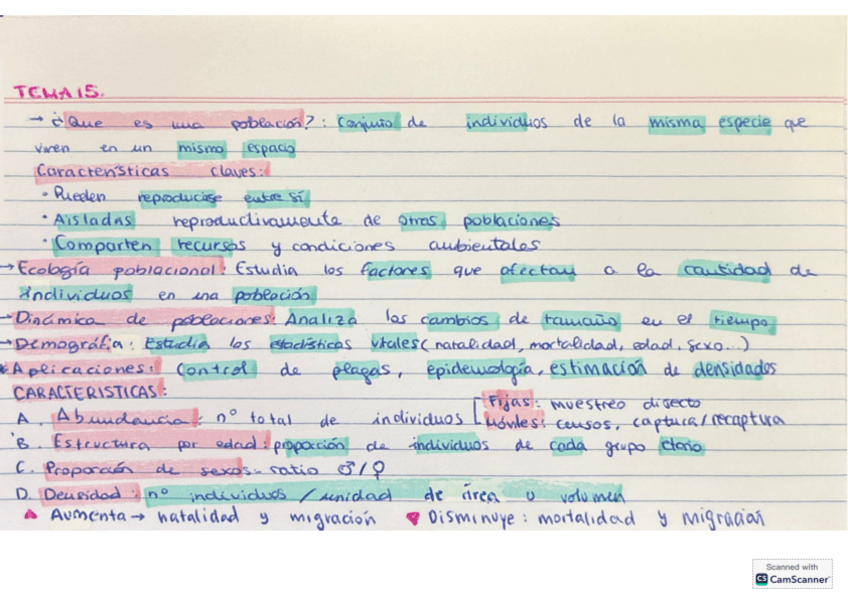 TEMA 15.
→ ¿Que es una población?: Conjunto de individuos de la misma especie que
viven en un mismo espacio
Características claves:
• Pueden reproducirse entre sí
• Aisladas reproductivamente de otras poblaciones
• Comparten recursos y condiciones ambientales
→ Ecología poblacional: Estudia los factores que afectan a la cantidad de
individuos en una población
→ Dinámica de poblaciones: Analiza los cambios de tamaño en el tiempo
→ Demografía: Estudia las estadísticas vitales (natalidad, mortalidad, edad, sexo...)
* Aplicaciones: Control de plagas, epidemiología, estimación de densidades
CARACTERISTICAS:
A. Abundancia: nº total de individuos [ Fijas: muestreo directo
Móviles: censos, captura/recaptura
B. Estructura por edad: proporción de individuos de cada grupo etario
C. Proporción de sexos - ratio ♂/♀
D. Densidad: nº individuos / unidad de área o volumen
▲ Aumenta → natalidad y migración ▼ Disminuye: mortalidad y migración
Scanned with
CS CamScanner